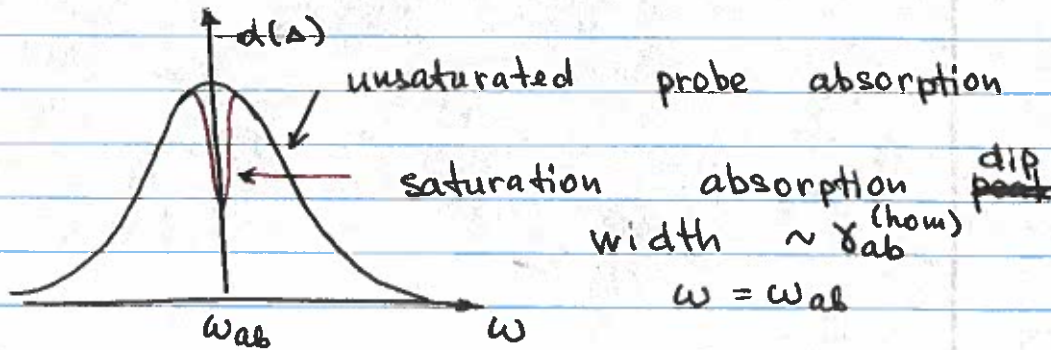 α(Δ)
unsaturated probe absorption
saturation absorption dip
width ~ γab^(hom)
ω = ωab
ωab ω